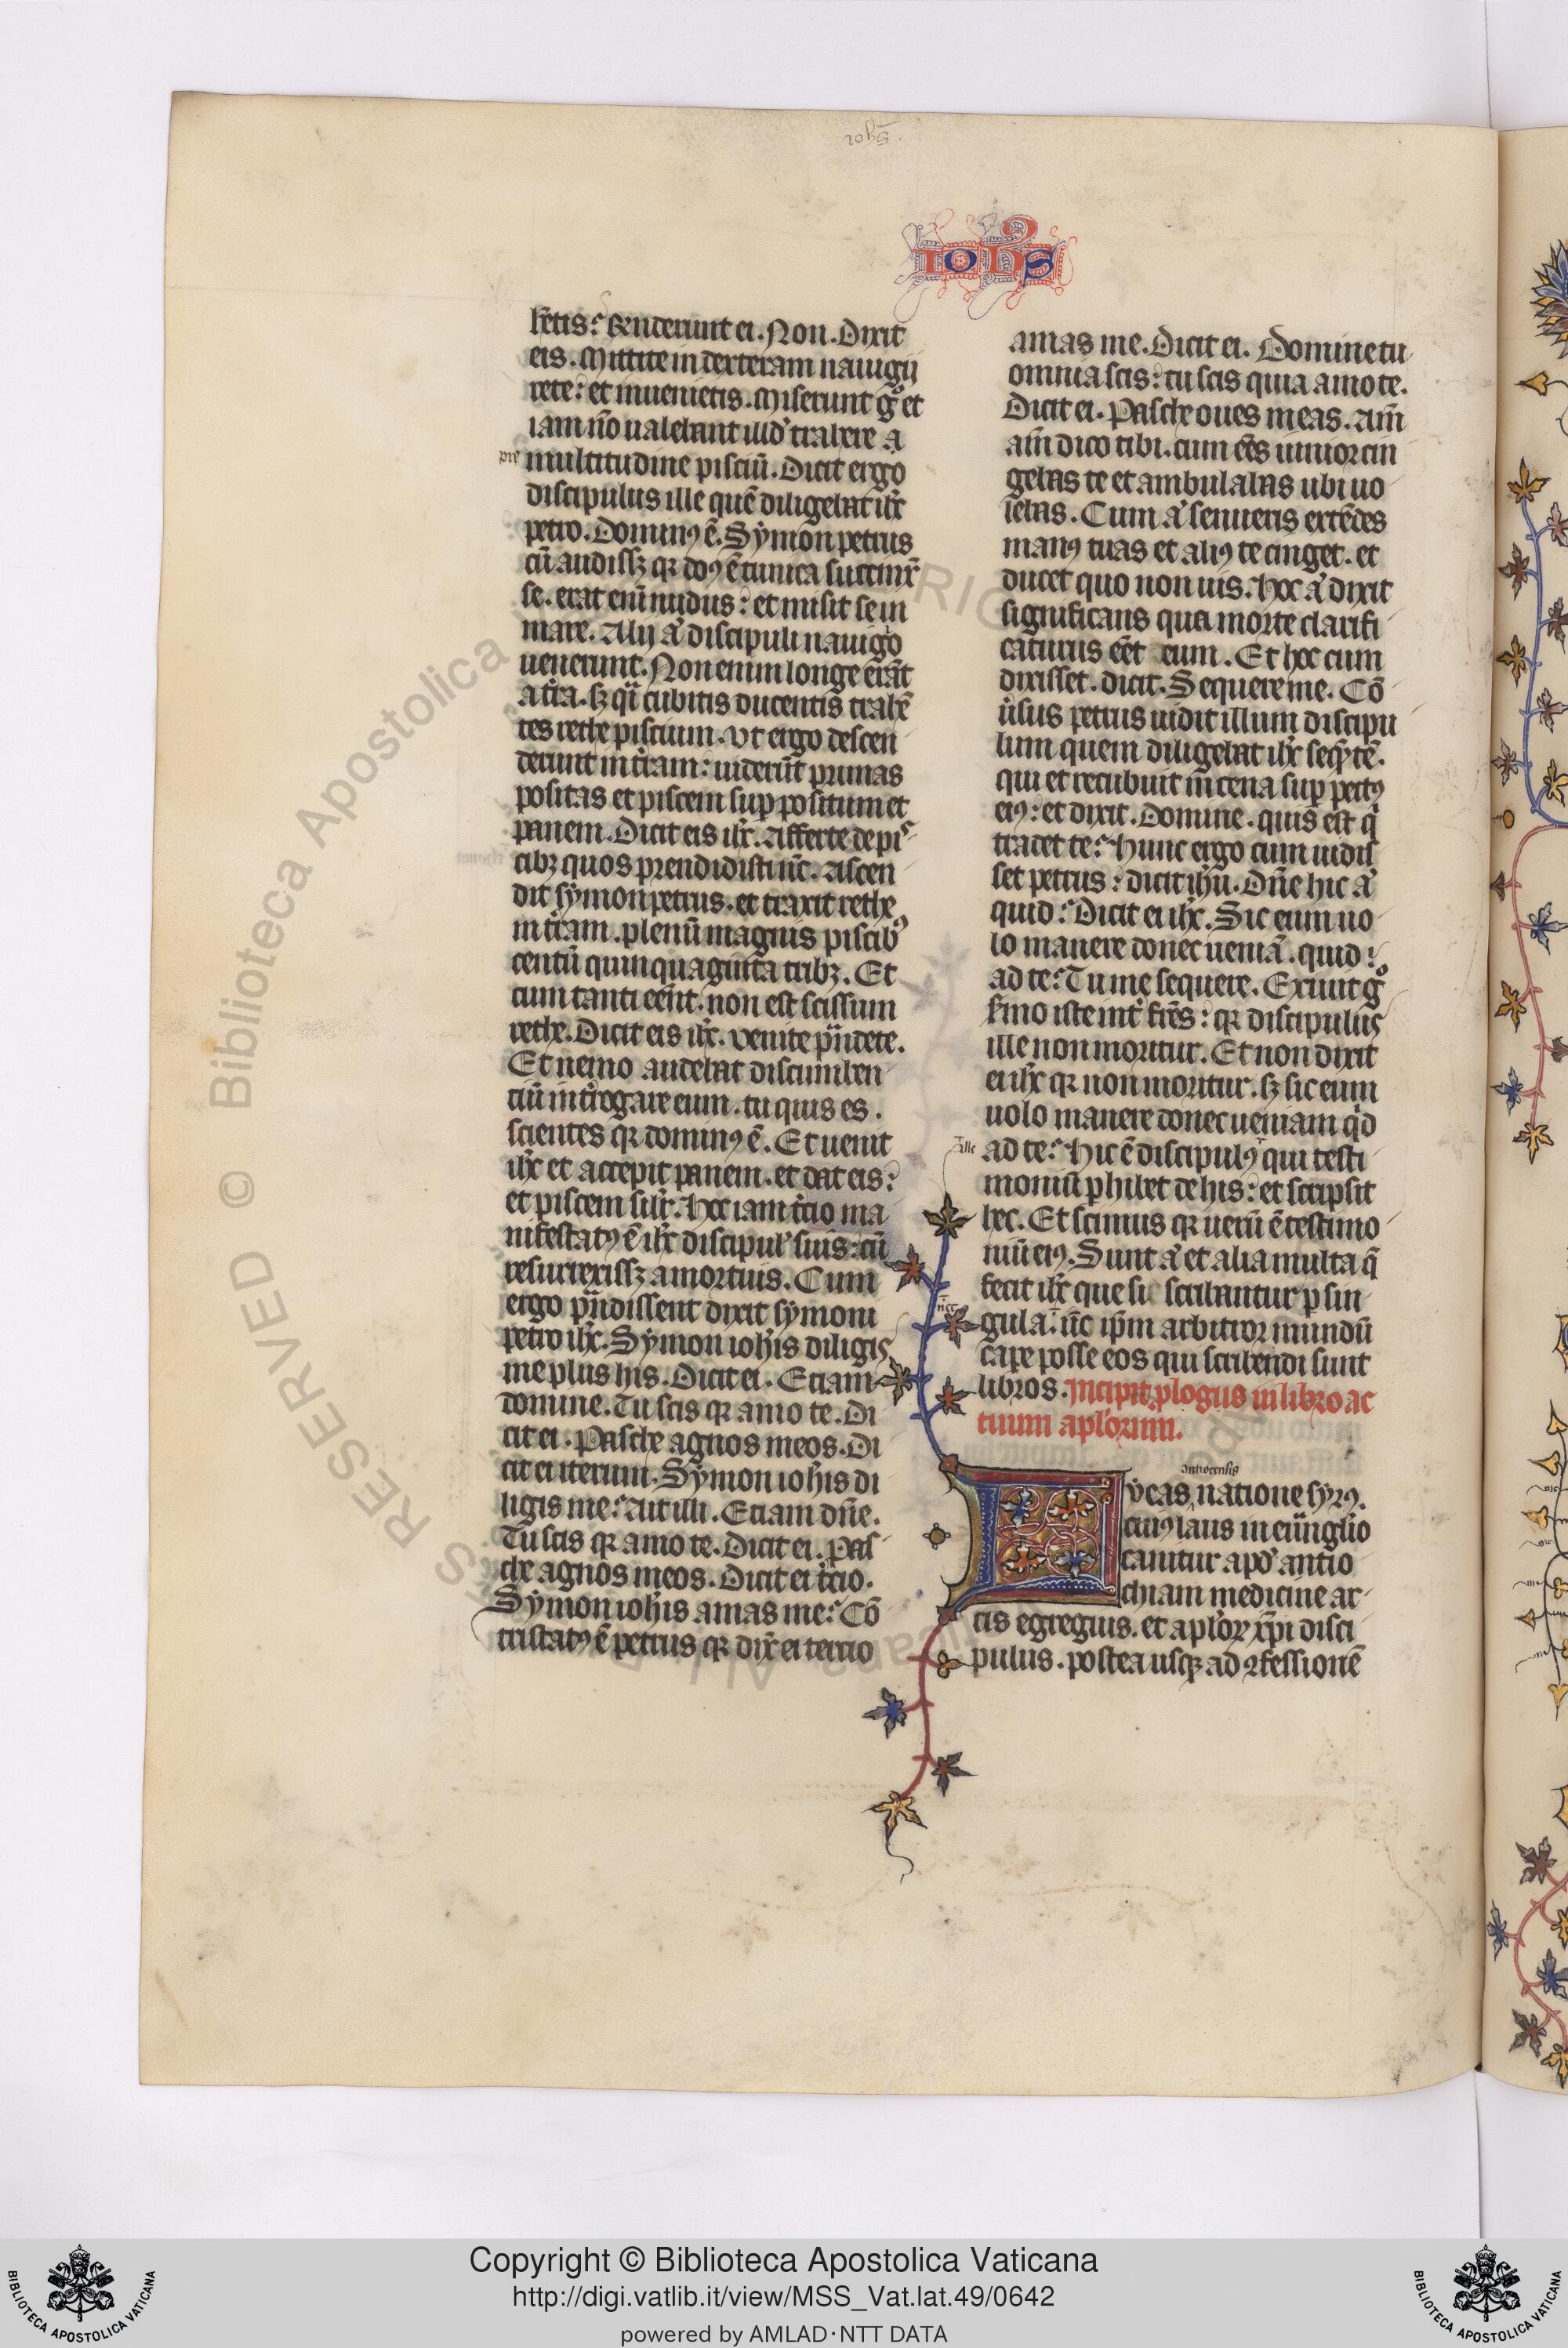 ioh̄s
IOHS
bētis? Renderunt ei. Non. Dixit
eis. Mittite in dexteram nauigii
rete: et inuenietis. Miserunt gͦ et
iam nō ualebant illđ trahere a
pre multitudine pisciū. Dicit ergo
discipulus ille quē diligebat ihc̄
petro. Dominꝰ ē. Symon petrus
cū audissꝫ qꝛ dnꝰ ē tunica succinx̄
se. erat enī nudus: et misit se in
mare. Alij aͧ discipuli nauigo
uenerunt. Non enim longe erāt
a tr̄a. sꝫ qͣi cubitis ducentis trahē
tes rethe piscium. Vt ergo descen
derunt in tr̄am: uiderūt prunas
positas et piscem suꝑ positum et
panem. Dicit eis ihc̄. Afferte de pis
cibꝫ quos prendidisti nc̄. Ascen
dit symon petrus. et traxit rethe
in tr̄am. plenū magnis piscibꝰ
centū quinquaginta tribꝫ. Et
cum tanti eēnt. non est scissum
rethe. Dicit eis ihc̄. Venite pͣndete.
Et nemo audebat discumben
ciū int̄rogare eum. tu quis es.
scientes qꝛ dominꝰ ē. Et uenit
ihc̄ et accepit panem. et dat eis:
et piscem silr̄. Hoc iam tͨcio ma
nifestatꝰ ē ihc̄ discipul̓ suis: cū
resurrexissꝫ a mortuis. Cum
ergo pͣndissent dixit symoni
petro ihc̄. Symon ioh̄is diligis
me plus his. Dicit ei. Etiam
domine. Tu scis qꝛ amo te. Di
cit ei. Pasche agnos meos. Di
cit ei iterum. Symon ioh̄is di
ligis me? Ait illi. Etiam dn̄e.
Tu scis qꝛ amo te. Dicit ei. Pas
che agnos meos. Dicit ei tͨcio.
Symon ioh̄is amas me? Cō
tristatꝰ ē petrus qꝛ dix̄ ei tercio
amas me. Dicit ei. Domine tu
omnia scis: tu scis quia amo te.
Dicit ei. Pasche oues meas. Am̄
am̄ dico tibi. cum eēs iunior cin
gebas te et ambulabas ubi uo
lebas. Cum aͧ senueris extēdes
manꝰ tuas et aliꝰ te cinget. et
ducet quo non uis. Hoc aͧ dixit
significans qua morte clarifi
caturus eēt eum. Et hoc cum
dixisset. dicit. Sequere me. Cō
u̓sus petrus uidit illum discipu
lum quem diligebat ihc̄ seqͤtē.
qui et recubuit in cena suꝑ pectꝰ
eiꝰ: et dixit. Domine. quis est qͥ
tradet te? Hunc ergo cum uidis
set petrus: dicit ihū. Dn̄e hic aͧ
quid? Dicit ei ihc̄. Sic eum uo
lo manere donec ueniā. quid
ad te? Tu me sequere. Exiuit gͦ
s̓mo iste int̓ fr̄es: qꝛ discipulus
ille non moritur. Et non dixit
ei ihc̄ qꝛ non moritur. sꝫ sic eum
uolo manere donec ueniam qͥd
ad te? Hic ē discipulꝰ ille qui testi
moniū ꝑhibet de his: et scripsit
hec. Et scimus qꝛ uerū ē testimo
niū eiꝰ. Sunt aͧ et alia multa q̄
fecit ihc̄ que si scribantur ꝑ sin
gula: nc̄ ip̄m arbitror mundū
nec
capere posse eos qui scribendi sunt
libros. Incipit ꝓlogus in libro ac
tuum apl̓orum.
antiocensis
Lvcas natione syrꝰ.
cuiꝰ laus in euͣnglio
canitur apđ antio
chiam medicine ar
tis egregius. et apl̓oꝝ xp̄i disci
pulus. postea usqꝫ ad ꝯfessionē
© Biblioteca Apostolica
RESERVED
Copyright © Biblioteca Apostolica Vaticana
http://digi.vatlib.it/view/MSS_Vat.lat.49/0642
powered by AMLAD·NTT DATA
BIBLIOTECA APOSTOLICA VATICANA
BIBLIOTECA APOSTOLICA VATICANA